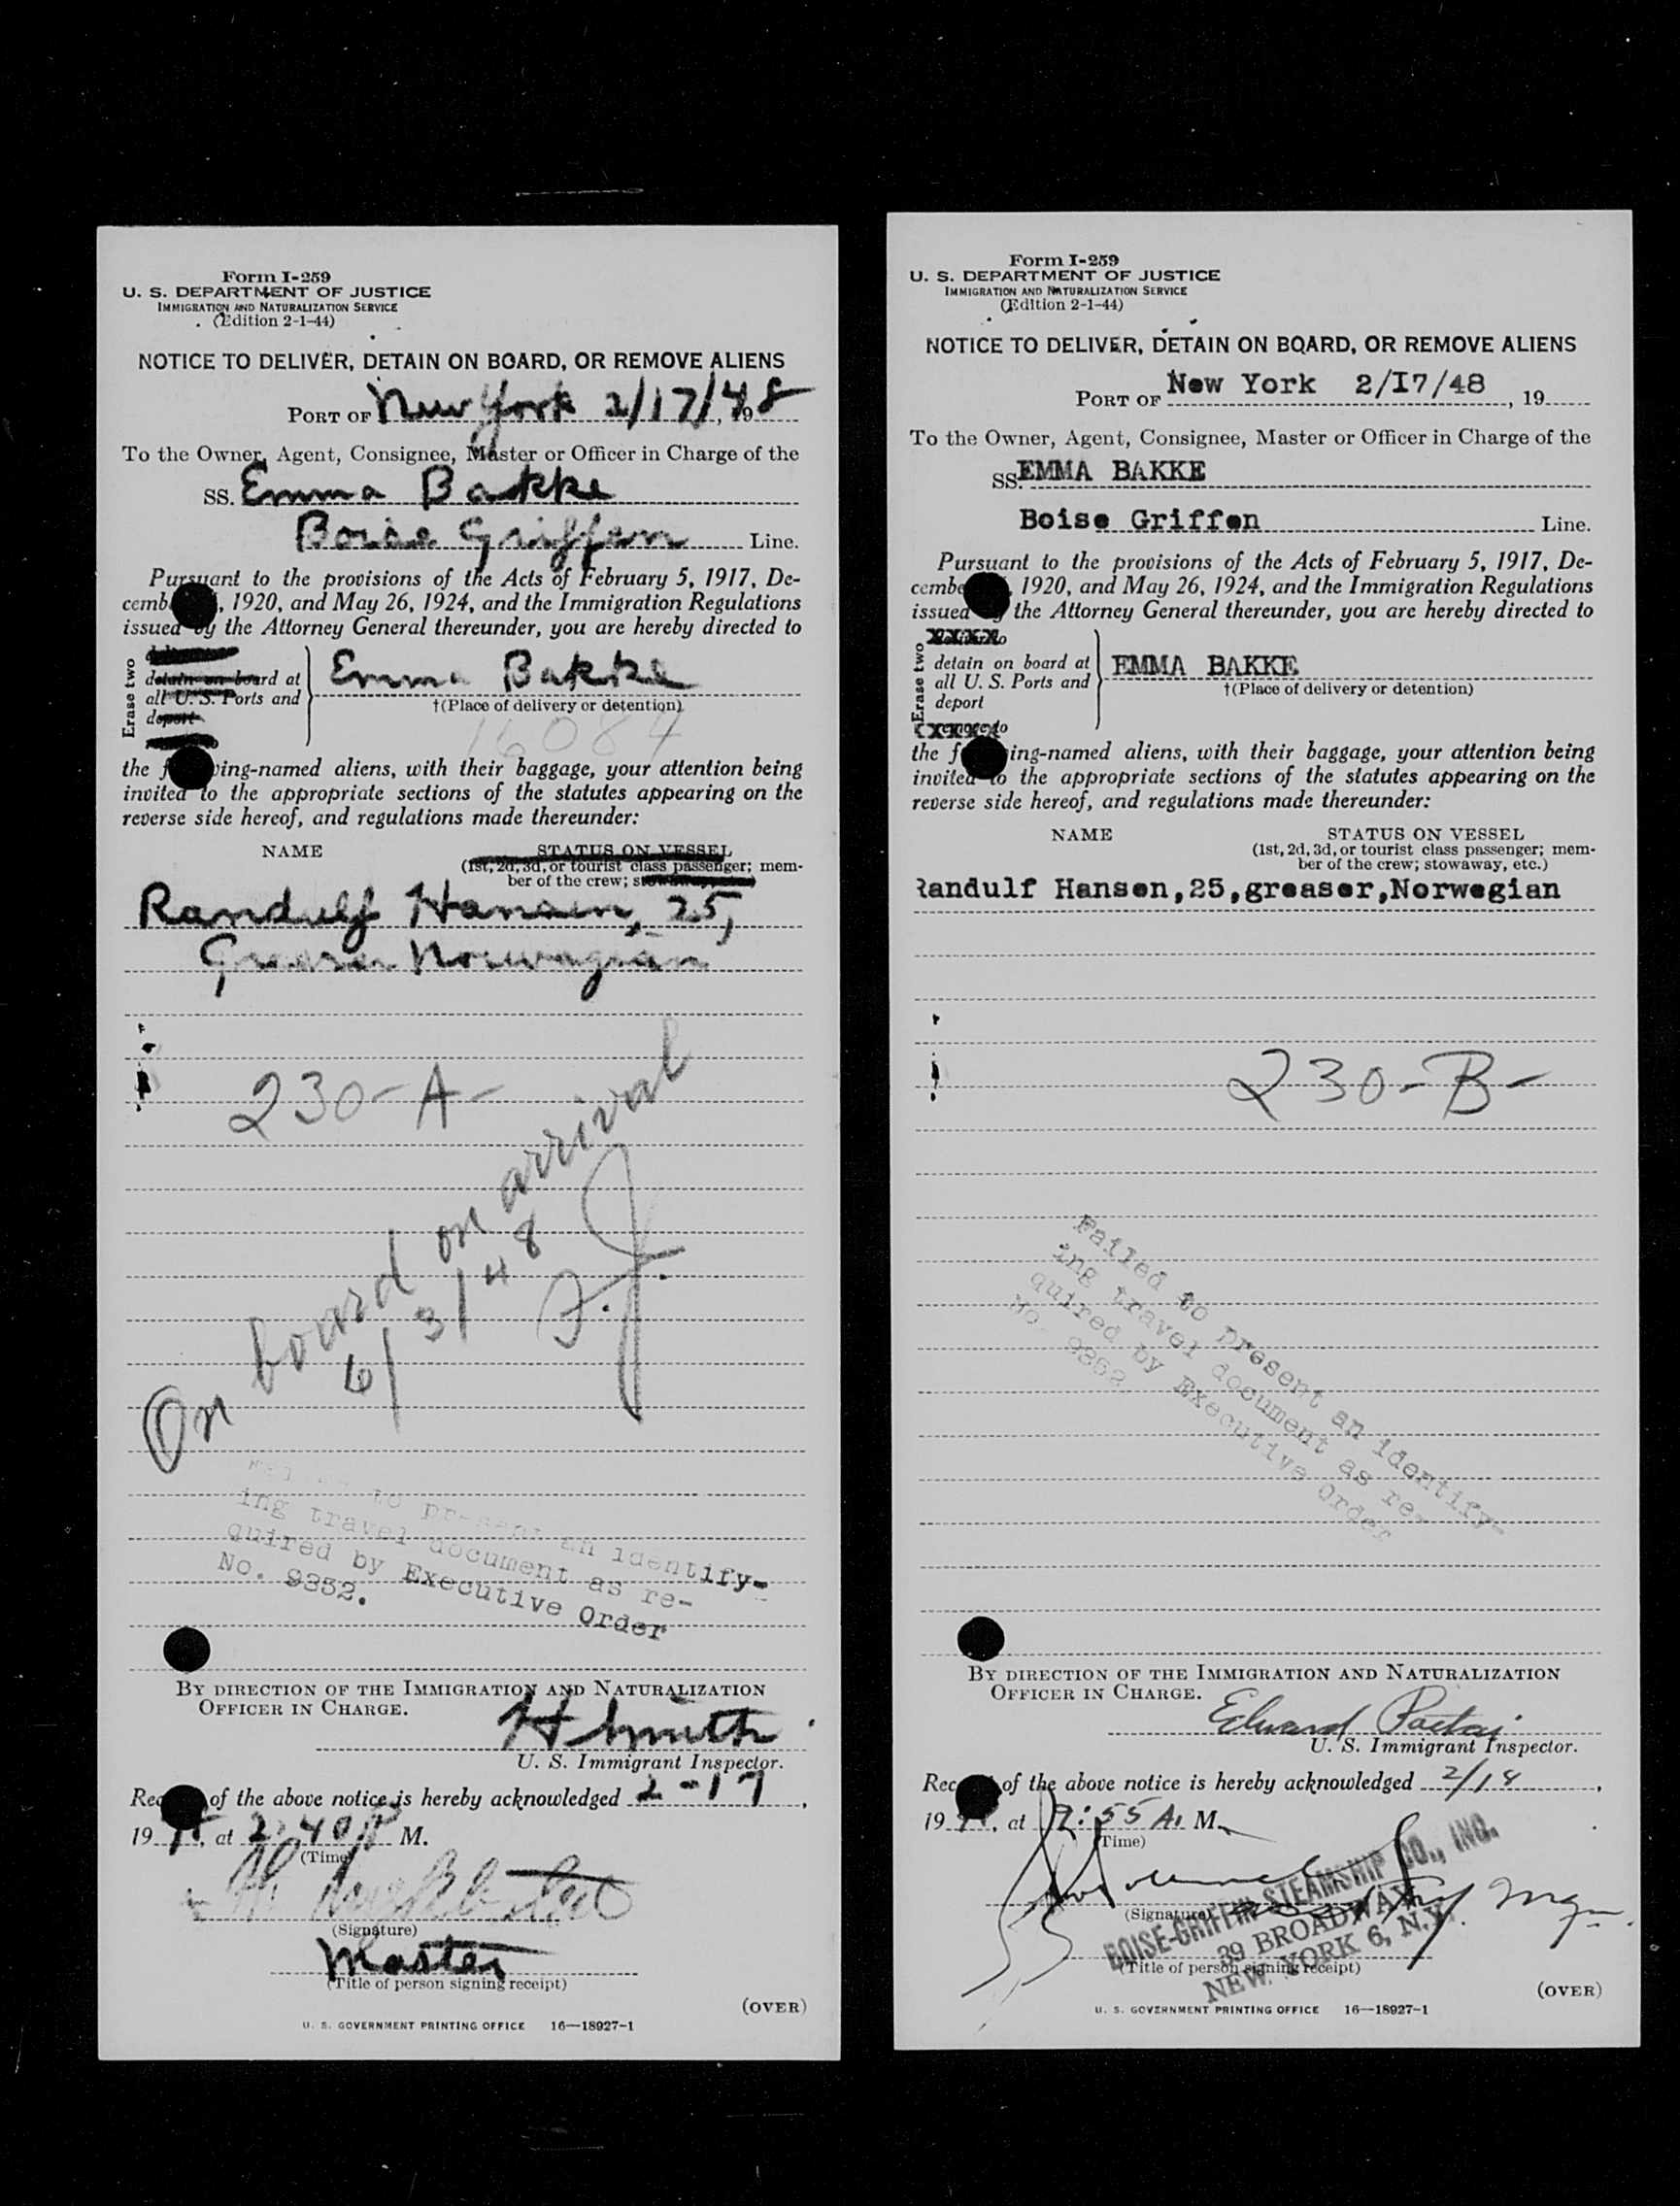 Form I-259
U. S. DEPARTMENT OF JUSTICE
IMMIGRATION AND NATURALIZATION SERVICE
(Edition 2-1-44)
NOTICE TO DELIVER, DETAIN ON BOARD, OR REMOVE ALIENS
PORT OF New York 2/17/48, 19
To the Owner, Agent, Consignee, Master or Officer in Charge of the
SS. Emma Bakke
Boise Griffen Line.
Pursuant to the provisions of the Acts of February 5, 1917, De-
cemb , 1920, and May 26, 1924, and the Immigration Regulations
issued by the Attorney General thereunder, you are hereby directed to
Erase two
detain on board at
all U. S. Ports and
deport
Emma Bakke
†(Place of delivery or detention)
16084
the f ing-named aliens, with their baggage, your attention being
invited to the appropriate sections of the statutes appearing on the
reverse side hereof, and regulations made thereunder:
NAME STATUS ON VESSEL
(1st, 2d, 3d, or tourist class passenger; mem-
ber of the crew;
Randulf Hansen, 25,
Greaser Norwegian
230-A-
On board on arrival
6/3/48
to present an identify-
ing travel document as re-
quired by Executive Order
No. 9352.
BY DIRECTION OF THE IMMIGRATION AND NATURALIZATION
OFFICER IN CHARGE.
H Smith
U. S. Immigrant Inspector.
Rec of the above notice is hereby acknowledged 2-17,
19 48, at 2:40 P M.
(Time)
(Signature)
Master
(Title of person signing receipt)
(OVER)
U. S. GOVERNMENT PRINTING OFFICE 16—18927-1
Form I-259
U. S. DEPARTMENT OF JUSTICE
IMMIGRATION AND NATURALIZATION SERVICE
(Edition 2-1-44)
NOTICE TO DELIVER, DETAIN ON BOARD, OR REMOVE ALIENS
PORT OF New York 2/I7/48, 19
To the Owner, Agent, Consignee, Master or Officer in Charge of the
SS. EMMA BAKKE
Boise Griffen Line.
Pursuant to the provisions of the Acts of February 5, 1917, De-
cembe , 1920, and May 26, 1924, and the Immigration Regulations
issued the Attorney General thereunder, you are hereby directed to
Erase two
XXXX
detain on board at
all U. S. Ports and
deport
XXXX
EMMA BAKKE
†(Place of delivery or detention)
the f ing-named aliens, with their baggage, your attention being
invited to the appropriate sections of the statutes appearing on the
reverse side hereof, and regulations made thereunder:
NAME STATUS ON VESSEL
(1st, 2d, 3d, or tourist class passenger; mem-
ber of the crew; stowaway, etc.)
Randulf Hansen,25,greaser,Norwegian
230-B-
Failed to present an identify-
ing travel document as re-
quired by Executive Order
No. 9352.
BY DIRECTION OF THE IMMIGRATION AND NATURALIZATION
OFFICER IN CHARGE.
Edward
U. S. Immigrant Inspector.
Rec of the above notice is hereby acknowledged 2/18,
19 48, at 9:55 A. M.
(Time)
(Signature)
BOISE-GRIFFIN STEAMSHIP CO., INC.
39 BROADWAY
NEW YORK 6, N.Y.
(Title of person signing receipt)
(OVER)
U. S. GOVERNMENT PRINTING OFFICE 16—18927-1